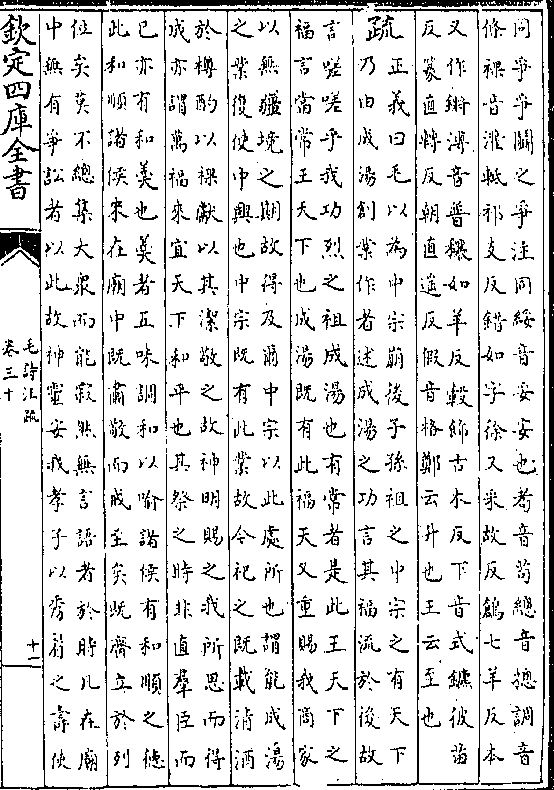 同爭爭鬭之爭注同綏音妥安也耇音茍總音摠調音
條祼音灌軧祁支反錯如字徐又采故反鶬七羊反本
又作鏘溥音普穰如羊反轂綈古木反下音式鑣彼苗
反篆直轉反朝直遥反假音格鄭云升也王云至也
疏正義曰毛以為中宗崩後子孫祖之中宗之有天下
乃由成湯創業作者述成湯之功言其福流於後故
言嗟嗟乎我功烈之祖成湯也有常者是此王天下之
福言當常王天下也成湯既有此福天又重賜我商家
以無疆境之期故得及爾中宗以此處所也謂能成湯
之業復使中興也中宗既有此業故今祀之既載清酒
於樽酌以祼獻以其潔敬之故神明賜之我所思而得
成亦謂萬福來宜天下和平也其祭之時非直羣臣而
已亦有和羮也羮者五味調和以喻諸侯有和順之徳
此和順諸侯來在廟中既肅敬而戒至矣既齊立於列
位矣莫不總集大衆而能寂然無言語者於時凡在廟
中無有爭訟者以此故神靈安我孝子以秀眉之壽使
欽定四庫全書
毛詩注疏
卷三十
十一